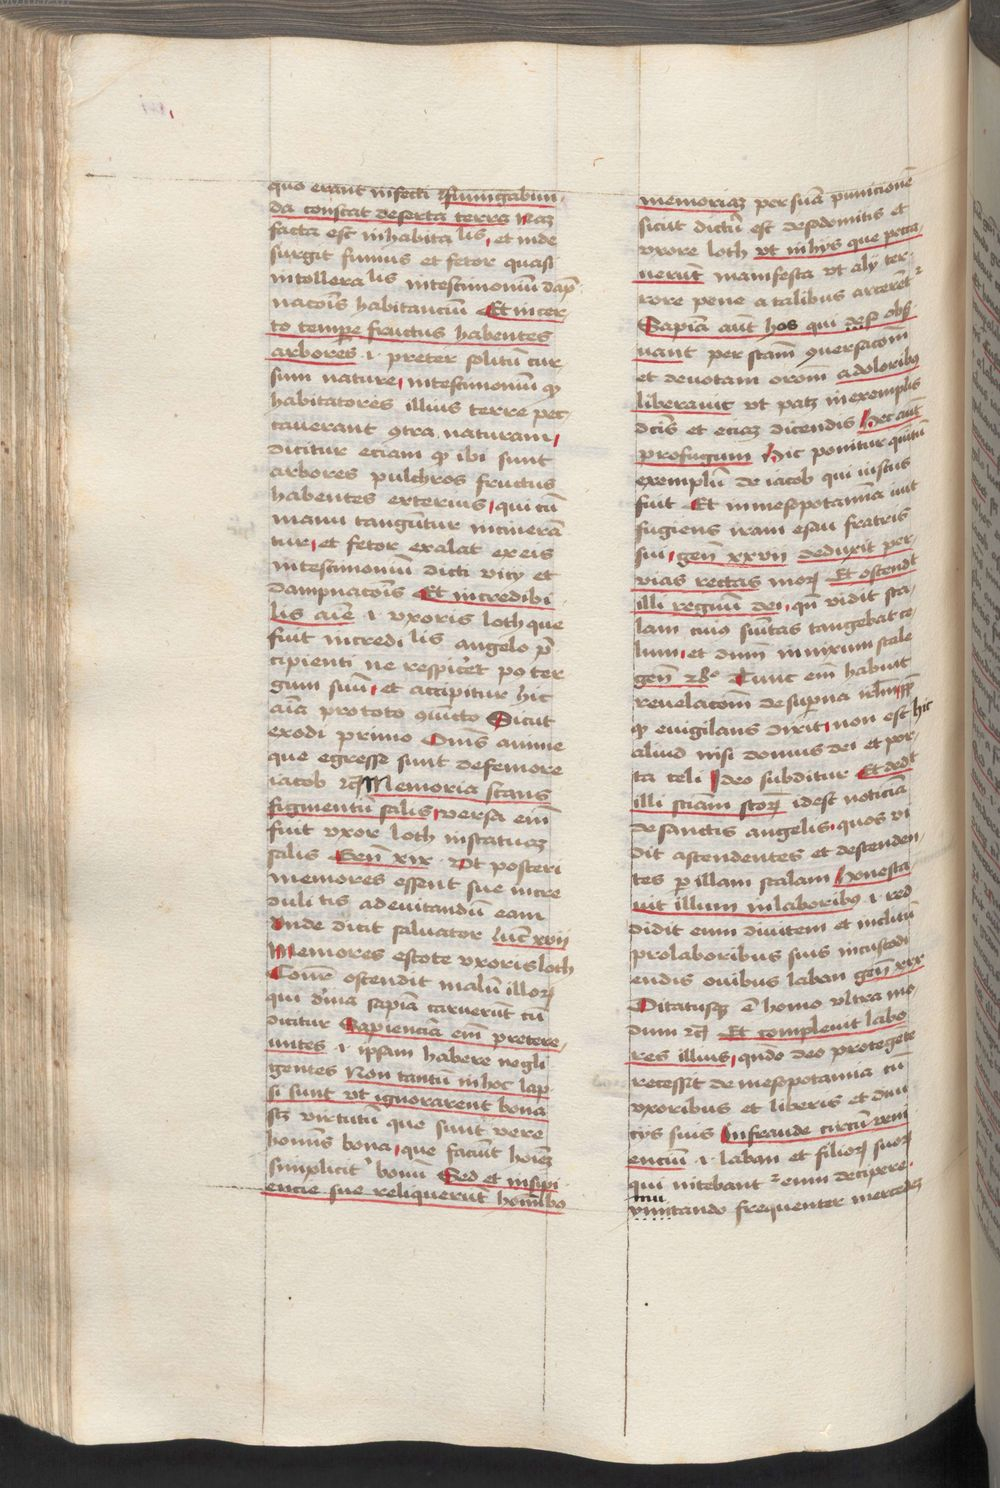 quo erant infecti fumigabun
da constat deserta terra Naz
facta est inhabita lis, et inde
surgit fumus et fetor quasi
intollera lis intestimoniū dāp
nacōis habitanciū Et incer
to tempe fructus habentes
arbores .i. preter solitū cur
sum nature, intestimoniū qꝫ
habitatores illius terre pec
caverant ꝯtra naturam,
dicitur eciam qꝫ ibi sunt
arbores pulchros fructus
habentes exterius, qui cū
manu tangūtur incinerā
tur, et fetor exalat ex eis
intestimoniū dicti vicij et
dampnacōis Et incredibi
lis aīe .i. vxoris loth que
fuit incredi lis angelo p̄
cipienti ne respicēt po ter
gum suū, et accipitur hic
aīa pro toto ꝯiūcto Sicut
exodi primo Om̄s anime
que egresse sunt de femore
iacob ⁊c̄ Memoria stans
figmentū salis, versa em̄
fuit vxor loth instatuaꝫ
salis Gen̄ xix. Vt posteri
memores essent sue incre
duli tis adevitandū eam
Vnde dicit salvator luc̄ xvii
Memores estote vxoris loth
Cōnr̄ ostendit malū illoꝝ
qui divīa sapīa caruerūt cū
dicitur Sapienciā em̄ pretere,
untes .i. ipsam habere negli
gentes Non tantū in hoc lap
si sunt vt ignorarent bona
sꝫ virtutū que sunt vere
homīs bona, que faciūt hoīeꝫ
simplicit̄ bonū Sed et insipi
encie sue reliquerūt homībꝰ
memoriaꝫ per suā punicionē
sicut dictū est de sodomitis et
vxore loth vt in hijs que pecca,
uerūt manifesta vt alij ter
rore pene a talibus arcerētᷣ
Sapīa aūt hos qui de se obs
uant per sctam̄ ꝯuersacōm̄
et devotam orom̄ a doloribꝰ
liberavit vt patꝫ in exemplis
dc̄is et eciaꝫ dicendis Hec aūt
profugum Hic ponitur quītū
exemplū de iacob qui iustus
fuit Et in mesopotamia ivit
fugiens iram esau fratris
sui, gen̄ xxvii deduxit per
vias rectas moꝝ Et ostendᵗ
illi regnū dei, qn̄ vidit sca,
lam cuiꝰ sum̄itas tangebat ce
lum, et dn̄m innixum scale
gen̄ 28º Tunc em̄ habuit
revelacom̄ de superna irl̄m
qꝫ evigilans dixit, non est hic
aliud nisi domus dei et por,
ta celi Ideo subditur Et dedᵗ
illi sciam̄ scōꝝ id est noticiā
de sanctis angelis, quos vi
dit ascendentes et descenden,
tes ꝑ illam scalam Honesta
uit illum in laboribꝰ .i. red
didit eum divitem et inclitū
pro laboribus suis in custodi
endis ovibus laban gen̄ xxx
Ditatusqꝫ ē homo vltra mo,
dum ⁊c̄ Et complevit labo
res illius, qn̄do deo protegēte
recessit de mesopotamia cū
vxoribus et liberis et divi
cijs suis In fraude circū veni
enciū .i. laban et filioꝝ suoꝝ
qui nitebantᷣ eum decipere
mu
vnntando frequenter mercedeꝫ